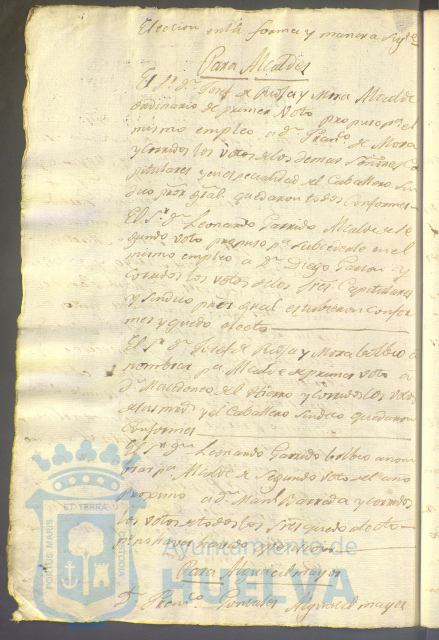 Election en la forma y manera sigte
Para Alcaldes
El Sr. Dn. Josef de Rioja y Mora Alcalde
ordinario de primer voto propuso pa. el
mismo empleo a Dn. Franco. de Mora
y corridos los votos de los demas Señores Ca
pitulares y en especialidad el Caballero Sin
dico pror. gral. quedaron todos conformes
El Sr. Dn. Leonardo Garrido Alcalde de se
gundo voto propuso pa. subcederle en el
mismo empleo a Dn. Diego Garzon y
corridos los votos de los Sres. Capitulares
y Sindico pror. gral estubieron confor
mes y quedo electo
El Sr. Dn. Josef de Rioja y Mora bolbio a
nombrar pa. Alcalde de primer voto a
Dn. del Hierro y corridos los votos
de los mos. y el Caballero Sindico quedaron
conformes
El Sr. Dn. Leonardo Garrido bolbio a nom
brar pa. Alcalde de segundo voto el año
proximo a Dn. Manl. Barreda y corridos
los votos de todos los Sres. quedo electo
pr. no haver havido oposicion
Para Alguacil mayor
Dn. Franco. Gonzalez Alguacil mayor
PORTUS MARIS ET TERRAE CUSTODIA
Ayuntamiento de
HUELVA